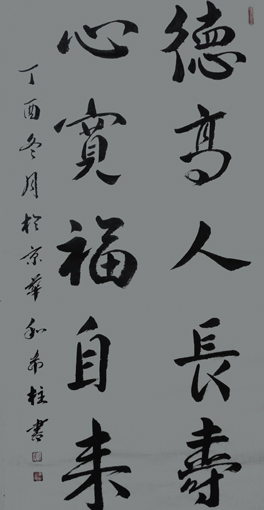 德高人長壽
心寬福自来
丁酉冬月於京華劉希柱書